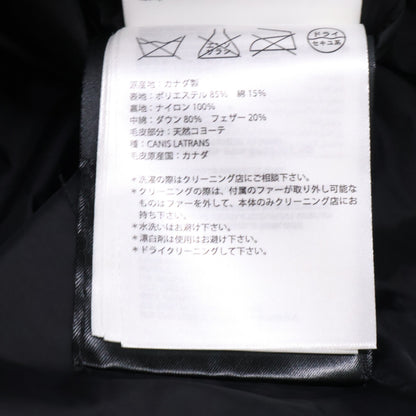 エンソ
サラシ
ドライ
セキユ系
原産地：カナダ製
表地：ポリエステル 85%　綿 15%
裏地：ナイロン 100%
中綿：ダウン 80%　フェザー 20%
毛皮部分：天然コヨーテ
種：CANIS LATRANS
毛皮原産国：カナダ
＊洗濯の際はクリーニング店にご相談下さい。
＊クリーニングの際は、付属のファーが取り外し可能な
ものはファーを外して、本体のみクリーニング店にお
持ち下さい。
＊水洗いはお避け下さい。
＊漂白剤は使用はお避け下さい。
＊ドライクリーニングして下さい。